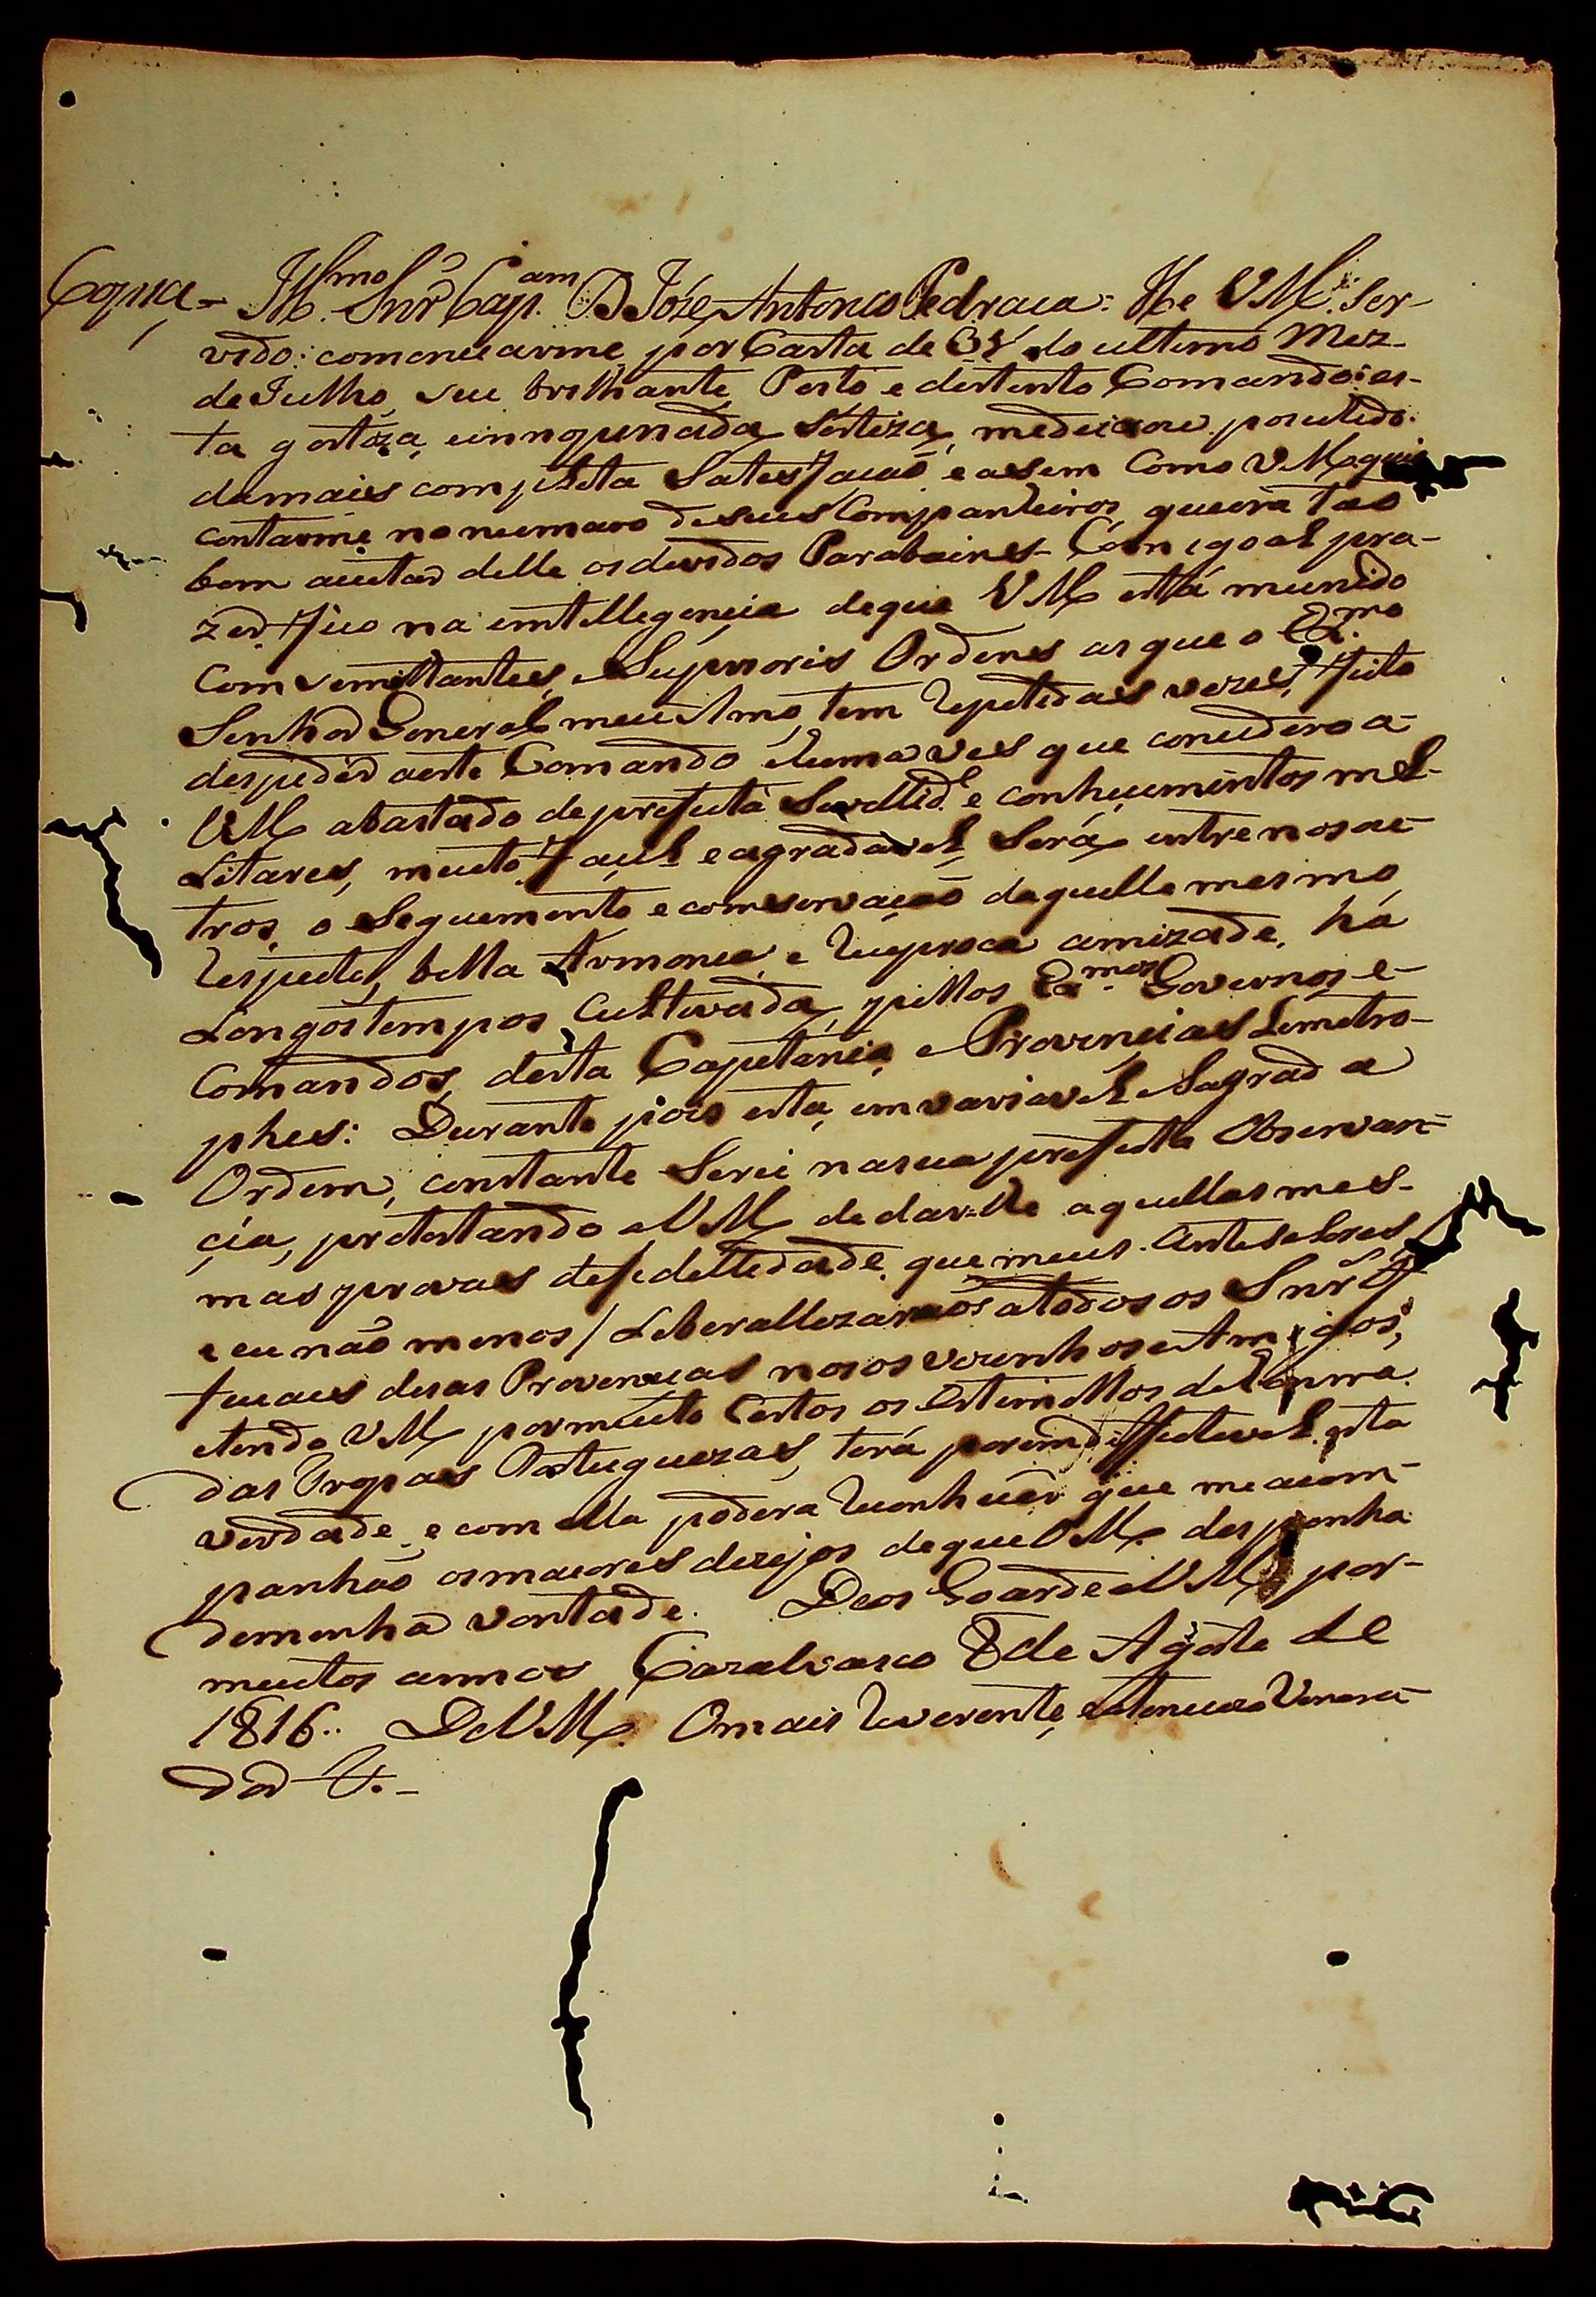 Copia = Ill.mo Snr̃ Cap.am D José Antonio Pedraca: He VM.ce Ser-
vido: comonicarme, por Carta de 31 do ultimo Mez
de Julho, seu brilhante Posto e destinto Comando: es-
ta gostóza, e innopinada Serteza, medeixou possuido.
damais completa Satesfação e asem Como VM.ce quis
contarme no numaro deseus Companheiros queira tão
bem aceitar delle os devidos Parabaines. Com igoal pra-
zer fico na intellegencia deque VM.ce está munido
Com semilhantes, e Superioris Ordens as que o Ex.mo
Senhor General meu Amo, tem Repetidas vezes, feito
despedir aeste Comando, e huma ves que concidero a
VM.ce abastado deprefeita Sevellid.e e conhecimentos mel-
litares, muito facil e agradavel Será entre nosou-
tros, o Seguemento e comservação daquelle mesmo
Respeito, bella Armonia, e Reciproca amizade, há
Longos tempos Cultevada, pellos Ex.mos Governos e
Comandos, desta Capetania e Provincias Lemetro-
phes: Durante pois esta, imvariavel e Sagrada
Ordem, constante Serei nasua prefeita Observan-
cia, protestando a VM.ce dedar-lhe aquellas mes-
mas provas de fedellidade, que meus Antesesores
e eu não menos / Liberallezamos atodos os Snr.es Of
feciaes desas Provencias nosos vezinhos e Amigos,
e tendo VM.ce por muito Certos os Estimullos de honra
das Tropas Portuguezas, terá por indiffectivel esta
verdade, e com ella poderá Reconhecer que me acom-
panhão os maiores dezejos deque VM.ce desponha
deminha vontade. Deos Goarde a VM.ce por
muitos annos Cazalvasco 8 de Agosto de
1816.. De VM.ce O mais Reverente, e atencioso Venera-
dor &.-